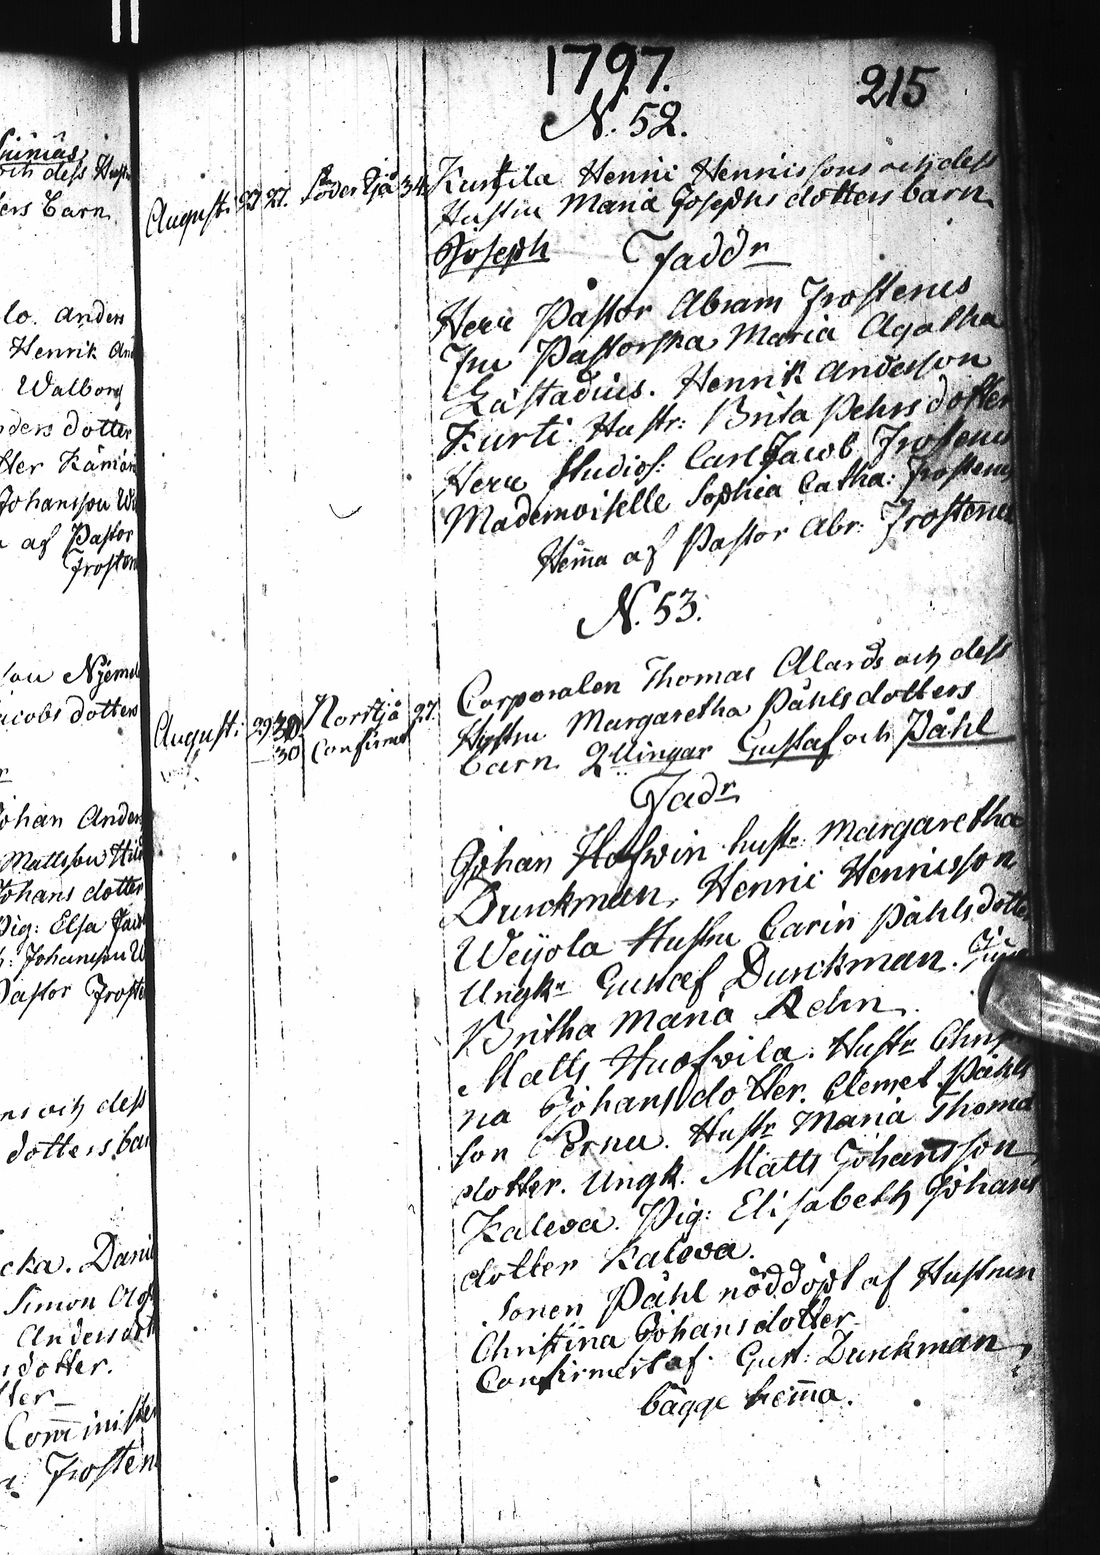 1797.
215
N. 52.
August: 27 27. Söder Tjå 34
Kurtila Henric Henricssons och dess
Hustru Maria Josephs dotters barn
Joseph Fadd.r
Herr Pastor Abram Frostenus
Fru Pastorska Maria Agatha
Lästadius. Henrik Andersson
Kurti. Hustr: Brita Pehrs dotter
Herr Studios: Carl Jacob Frostenus
Mademoiselle Sophia Catha: Frostenus
Hem̄a af Pastor Abr: Frostenus
N. 53.
August: 29 30. Norrtjå 27.
30 Confirmt
Corporalen Thomas Alards och dess
Hustru Margaretha Påhls dotters
barn 2llingar Gustaf och Påhl
Fadr
Johan Hofwin hustr Margaretha
Durckman, Henric Henricsson
Weijola Hustru Carin Påhls dotter
Ungkn Gustaf Durckman.
Britha Maria Rehn
Matts Huofvila. Hustr Christi
na Johans dotter. Clemet Påhls
son Pernu. Hustr Maria Thoma
dotter. Ungk. Matts Johansson
Kaleva. Pig: Elisabeth Johans
dotter Kaleva.
Sonen Påhl nöddöpt af Hustrun
Christina Johans dotter
Confirmert af Gust: Durckman,
bägge hem̄a.
och dess
ers barn
lo. Anders
Henrik
Walborg
ders dotter
Johansson
af Pastor
acobs dotters
Johan
Mattsson
Johans dotter
Pig: Elsa
Pastor
och dess
dotters
cka.
Simon
sdotter.
Com̄inister